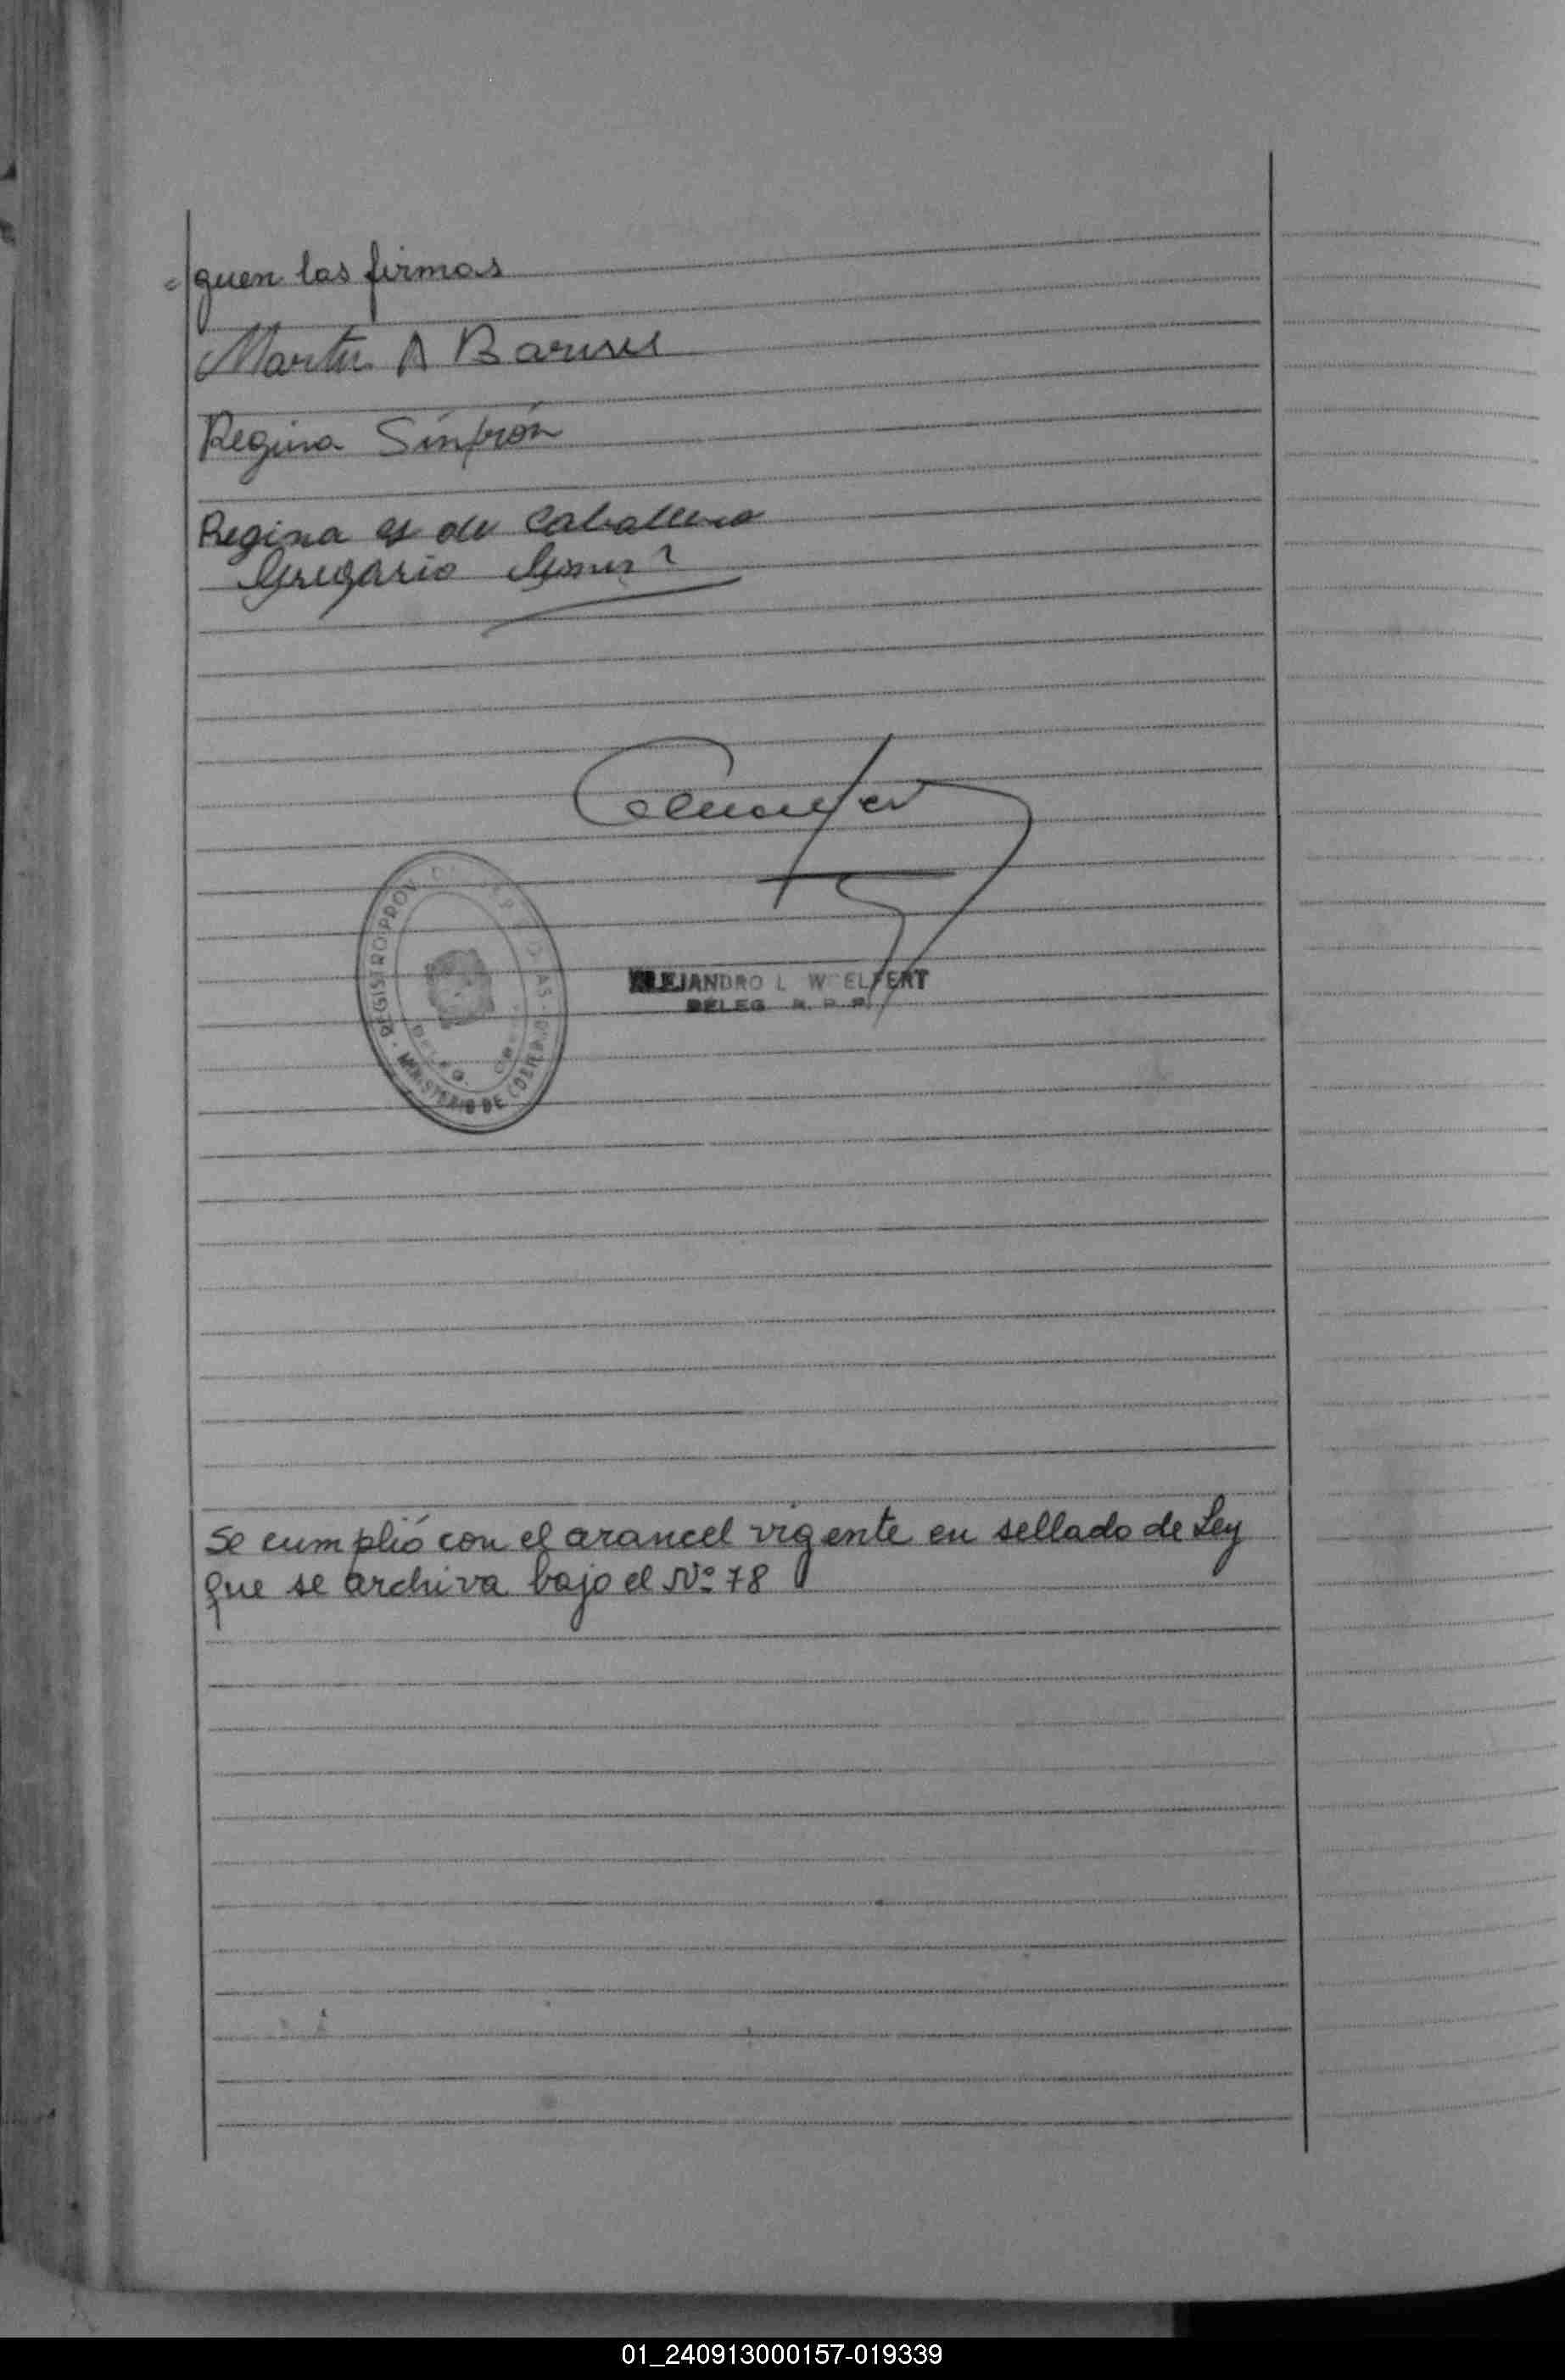 = guen las firmas
Martin A
Regina Sinfrón
Regina G de Caballero
Gregorio
REGISTRO PROV. DE LAS PERSONAS
MINISTERIO DE GOBIERNO
DELEG.
ALEJANDRO L WOELFERT
DELEG R. P. P.
Se cumplió con el arancel vigente en sellado de Ley
que se archiva bajo el Nº 78
01_240913000157-019339